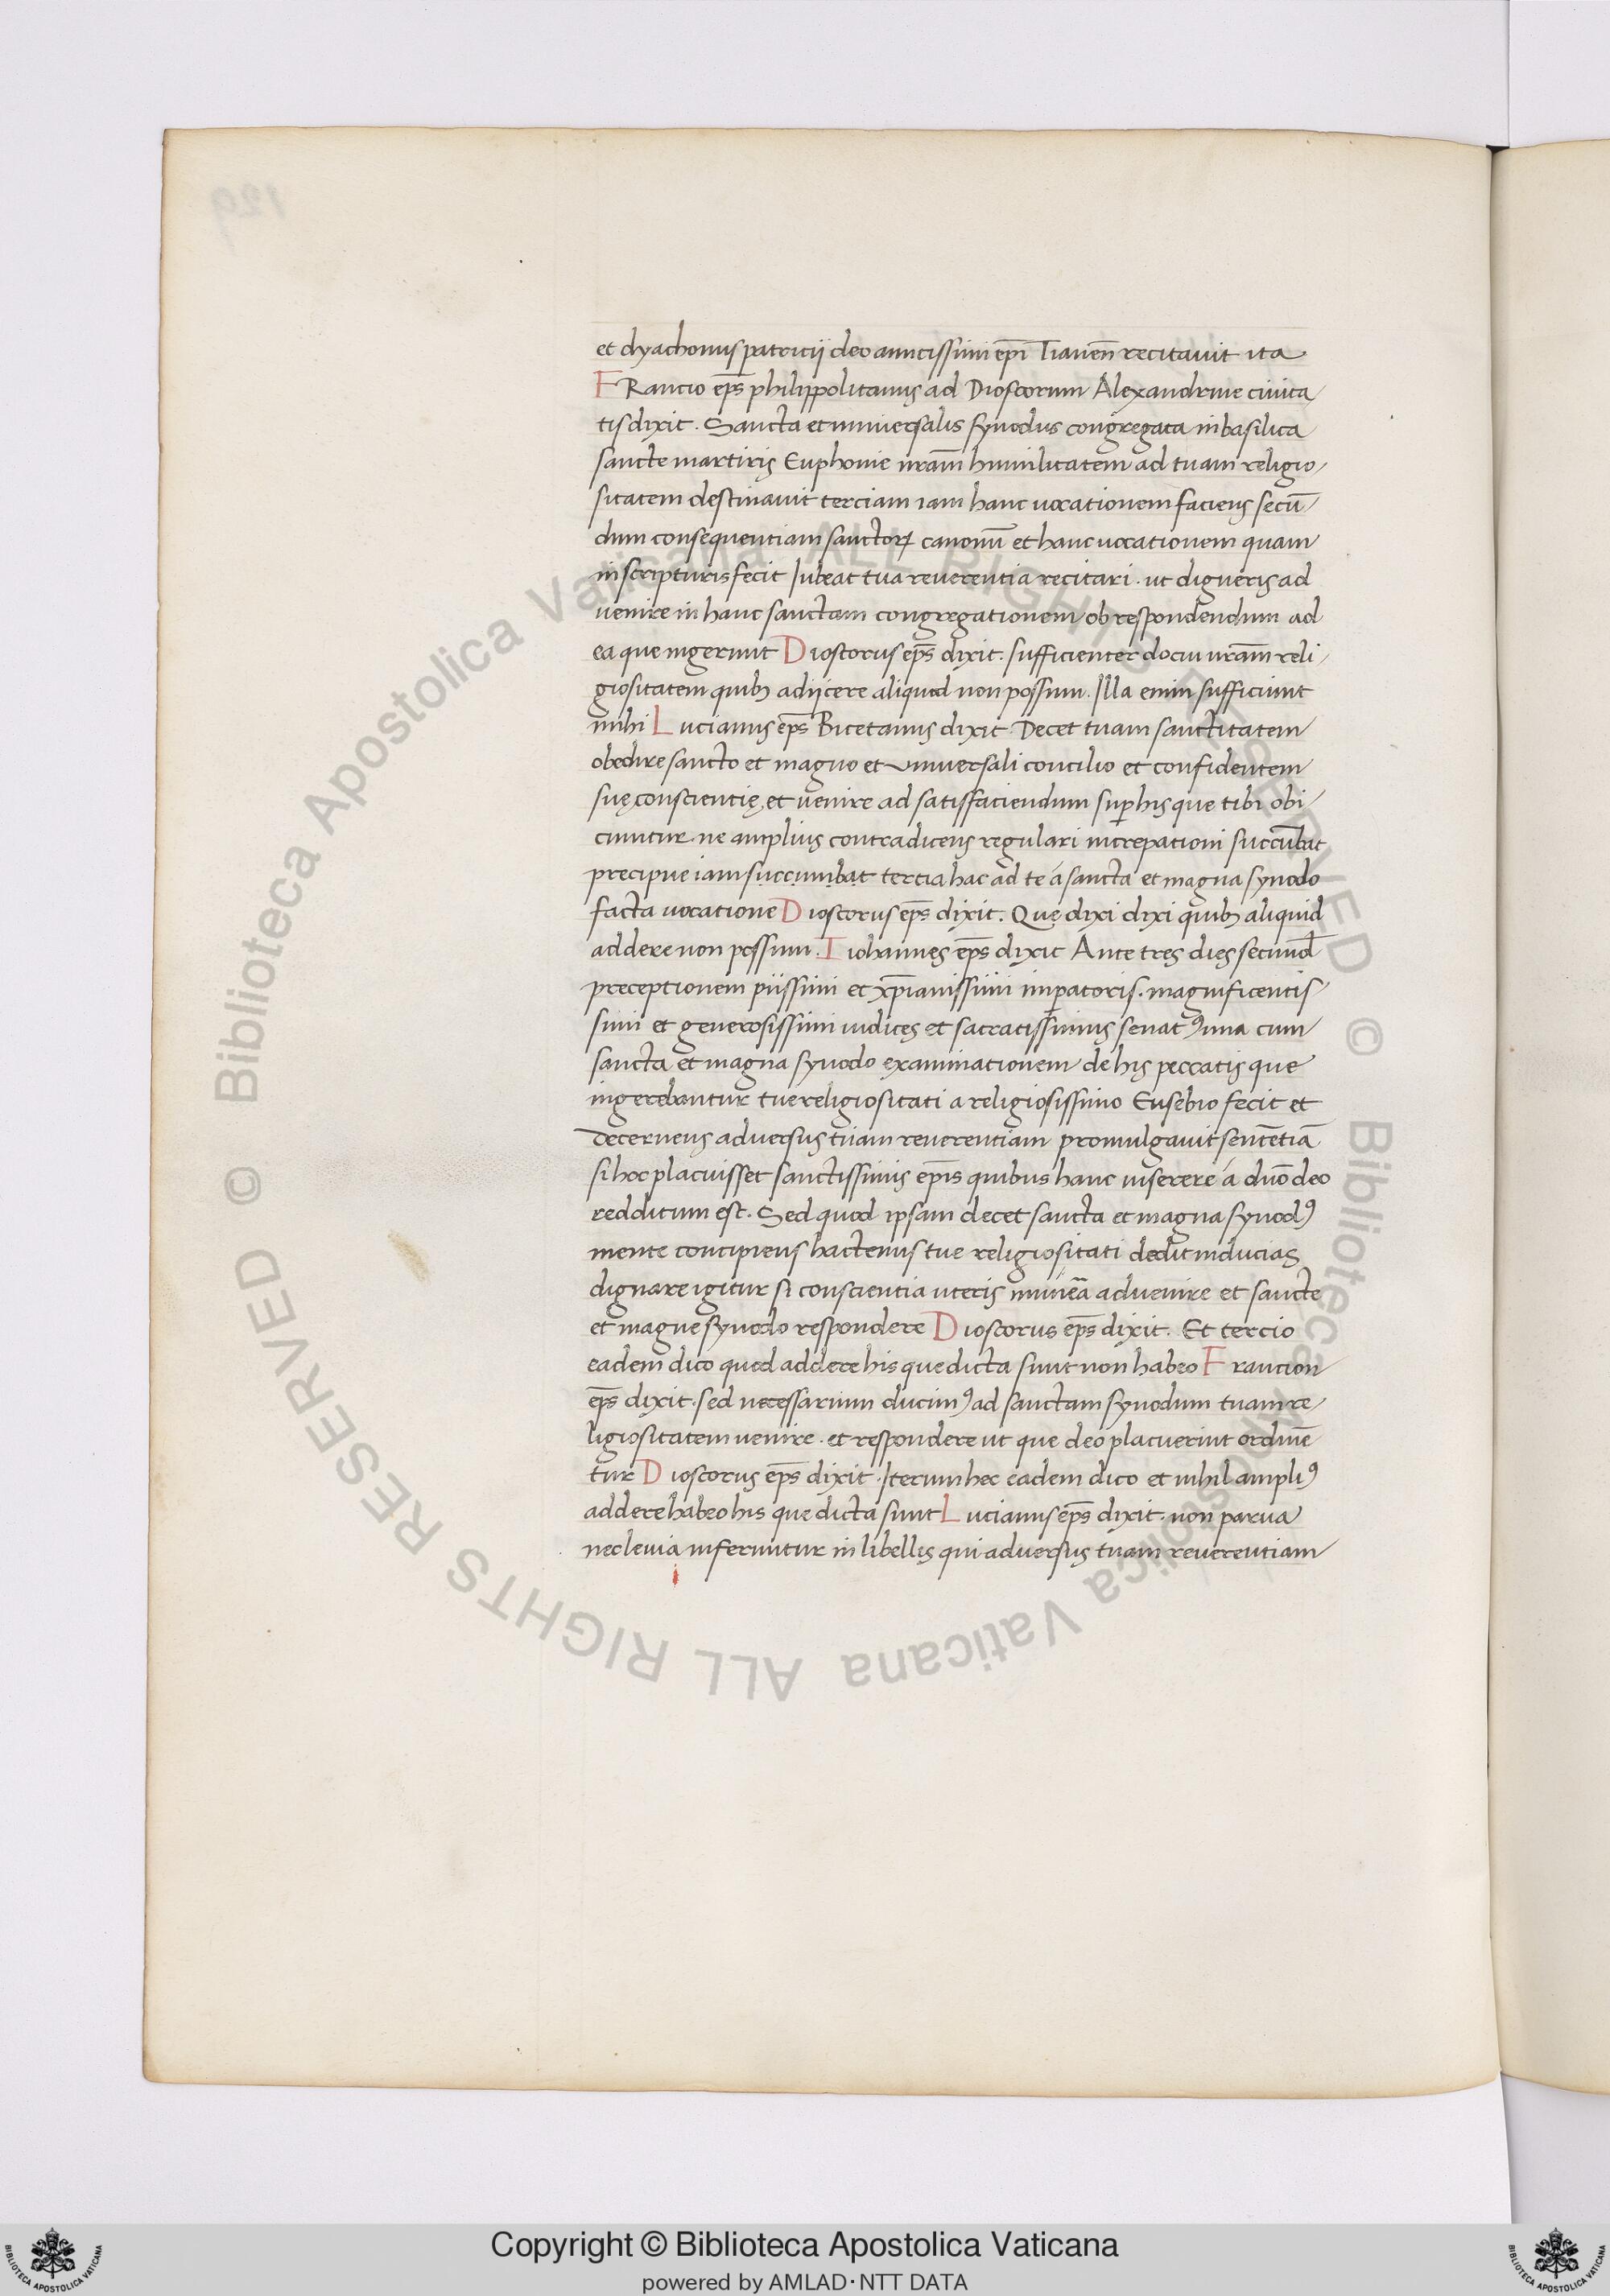 et dyachonus patricij deo amicissimi ep̄i Tianeñ recitavit ita
FRancio ep̄s philippolitanus ad Dioscorum Alexandrine civita
tis dixit. Sancta et universalis synodus congregata in basilica
sancte martiris Euphonie nrām humilitatem ad tuam religio
sitatem destinavit terciam iam hanc vocationem faciens secū
dum consequentiam sanctoꝝ canonū et hanc vocationem quam
in scripturis fecit Jubeat tua reverentia recitari. ut digneris ad
venire in hanc sanctam congregationem ob respondendum ad
ea que ingerunt Dioscorus ep̄s dixit. sufficienter docui vrām reli
giositatem quibꝫ adijcere aliquid non possum. Illa enim sufficiunt
mihi Lucianus ep̄s Bicetanus dixit. Decet tuam sanctitatem
obedire sancto et magno et universali concilio et confidentem
suę conscientię, et venire ad satisfaciendum suꝑ his que tibi obi
ciuntur. ne amplius contradicens regulari increpationi succūbat
precipue iam succumbat tercia hac ad te á sancta et magna synodo
facta vocatione Dioscorus ep̄s dixit. Que dixi dixi quibꝫ aliquid
addere non possum. Iiohannes ep̄s dixit Ante tres dies secund̄
preceptionem piissimi et xp̄ianissimi imꝑatoris. magnificentis
simi et generosissimi iudices et sacratissimus senatꝰ una cum
sancta et magna synodo examinationem de his peccatis que
ingerebantur tue religiositati a religiosissimo Eusebio fecit et
decernens adversus tuam reverentiam promulgavit sentētiā
si hoc placuisset sanctissimis ep̄is quibus hanc inserere á dn̄o deo
redditum est. Sed quod ipsam decet sancta et magna synodꝰ
mente concipiens hactenus tue religiositati dedit inducias
dignare igitur si conscientia uteris advenire et sancte
et magne synodo respondere Dioscorus ep̄s dixit. Et tercio
eadem dico quod addere his que dicta sunt non habeo Francion
ep̄s dixit. sed necessarium ducimꝰ ad sanctam synodum tuam re
ligiositatem venire. et respondere ut que deo placuerint ordinē
tur Dioscorus ep̄s dixit. Iterum hec eadem dico et nihil ampliꝰ
addere habeo his que dicta sunt Lucianus ep̄s dixit. non parva
nec levia inferuntur in libellis qui adversus tuam reverentiam
129
© Biblioteca Apostolica Vaticana ALL RIGHTS RESERVED © Biblioteca Apostolica Vaticana ALL RIGHTS RESERVED
Copyright © Biblioteca Apostolica Vaticana
powered by AMLAD·NTT DATA
BIBLIOTECA APOSTOLICA VATICANA
BIBLIOTECA APOSTOLICA VATICANA